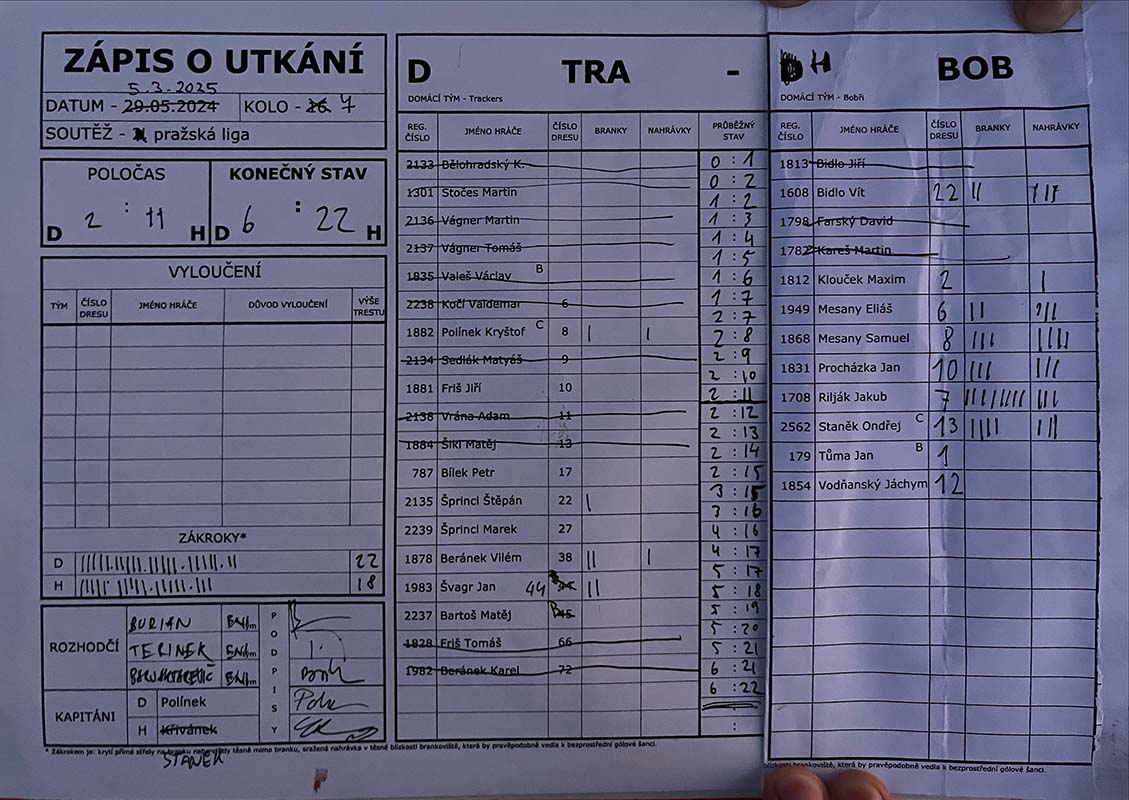 ZÁPIS O UTKÁNÍ
5.3.2025
DATUM - 29.05.2024 KOLO - 26. 7
SOUTĚŽ - pražská liga
POLOČAS KONEČNÝ STAV
D 2 : 11 H D 6 : 22 H
VYLOUČENÍ
TÝM ČÍSLO DRESU JMÉNO HRÁČE DŮVOD VYLOUČENÍ VÝŠE TRESTU
ZÁKROKY*
D 22
H 18
ROZHODČÍ
BURIAN
TERINEK
KAPITÁNI
D Polínek
H Křivánek
STANĚK
PODPISY
D TRA -
DOMÁCÍ TÝM - Trackers
REG. ČÍSLO JMÉNO HRÁČE ČÍSLO DRESU BRANKY NAHRÁVKY PRŮBĚŽNÝ STAV
2133 Bělohradský K.
1301 Stočes Martin
2136 Vágner Martin
2137 Vágner Tomáš
1835 Valeš Václav B
2238 Kočí Valdemar 6
1882 Polínek Kryštof C 8 | |
2134 Sedlák Matyáš 9
1881 Friš Jiří 10
2138 Vrána Adam 11
1884 Šikl Matěj 13
787 Bílek Petr 17
2135 Šprincl Štěpán 22 |
2239 Šprincl Marek 27
1878 Beránek Vilém 38 || |
1983 Švagr Jan 44 ||
2237 Bartoš Matěj
1828 Friš Tomáš 66
1982 Beránek Karel 72
0 : 1
0 : 2
1 : 2
1 : 3
1 : 4
1 : 5
1 : 6
1 : 7
2 : 7
2 : 8
2 : 9
2 : 10
2 : 11
2 : 12
2 : 13
2 : 14
2 : 15
3 : 15
3 : 16
4 : 16
4 : 17
5 : 17
5 : 18
5 : 19
5 : 20
5 : 21
6 : 21
6 : 22
:
H BOB
DOMÁCÍ TÝM - Bobři
REG. ČÍSLO JMÉNO HRÁČE ČÍSLO DRESU BRANKY NAHRÁVKY
1813 Bidlo Jiří
1608 Bidlo Vít 22 || |||
1798 Farský David
1782 Kareš Martin
1812 Klouček Maxim 2 |
1949 Mesany Eliáš 6 || |||
1868 Mesany Samuel 8 ||| |||||
1831 Procházka Jan 10 ||| |||
1708 Rilják Jakub 7 |||||||| |||
2562 Staněk Ondřej C 13 |||| |||
179 Tůma Jan B 1
1854 Vodňanský Jáchym 12
* Zákrokem je: krytí přímé střely na branku nebo střely těsně mimo branku, sražená nahrávka v těsné blízkosti brankoviště, která by pravěpodobně vedla k bezprostřední gólové šanci.
blízkosti brankoviště, která by pravěpodobně vedla k bezprostřední gólové šanci.